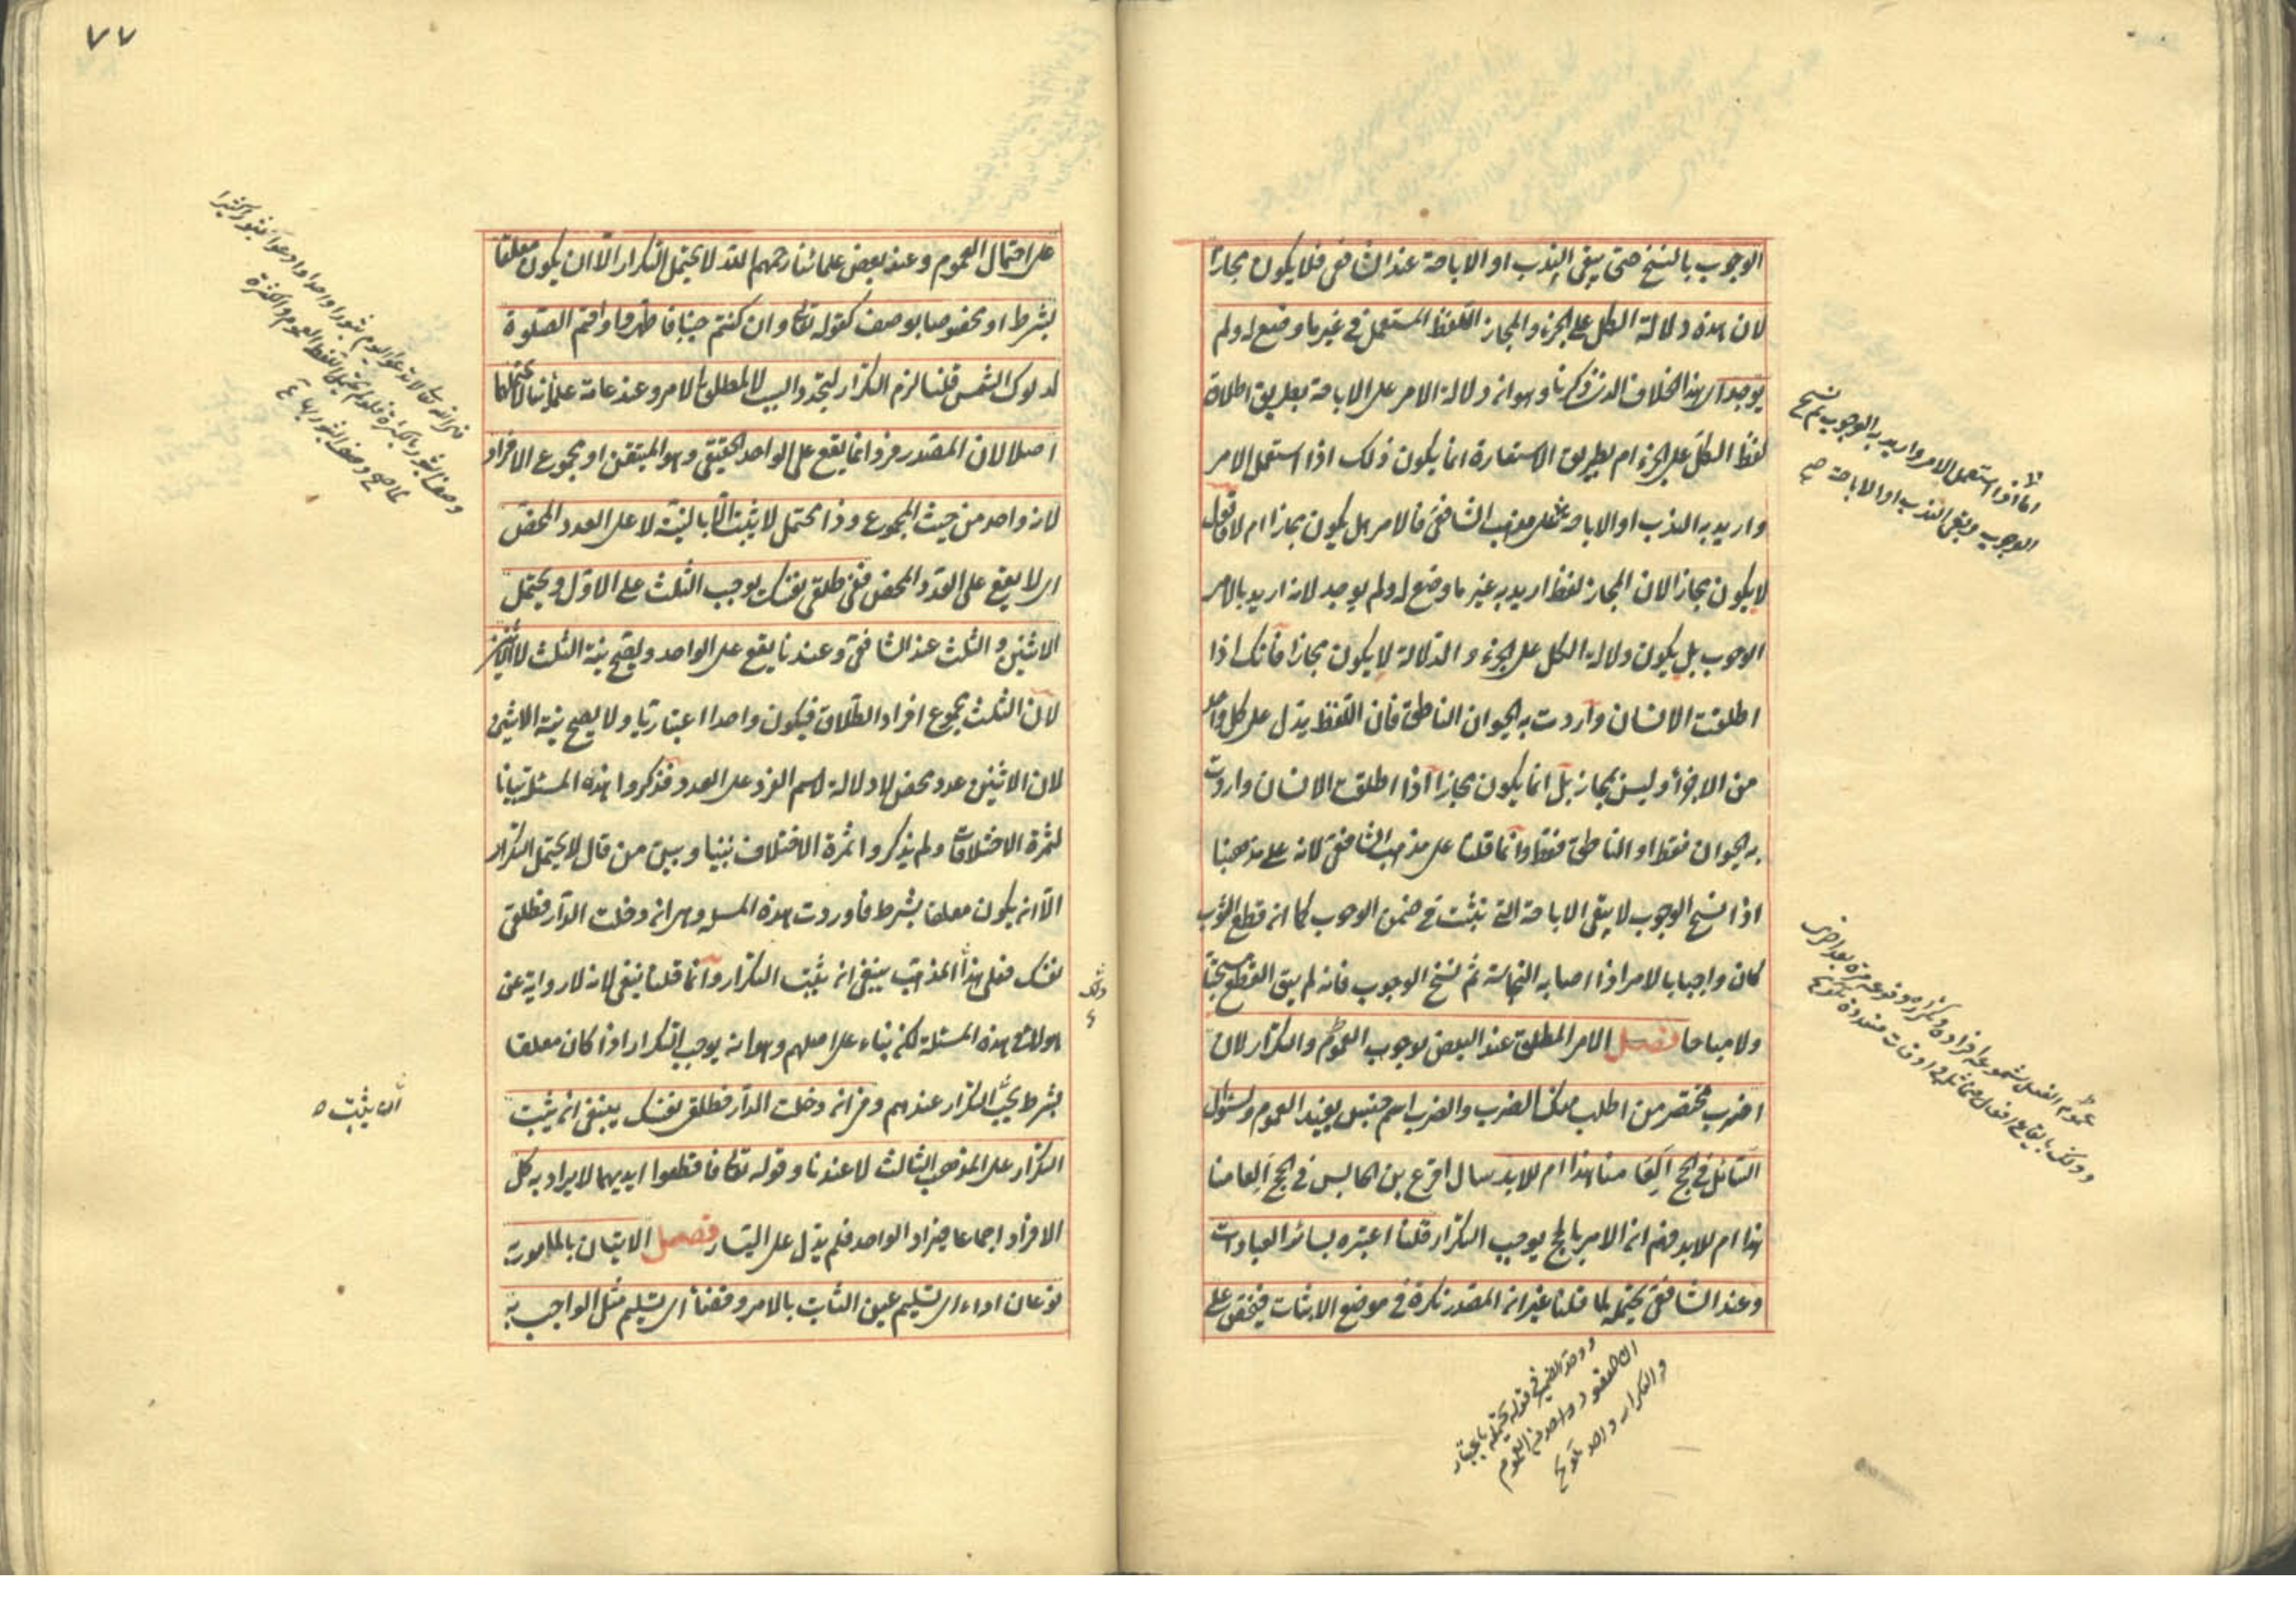 الوجوب بالنسخ حتى يبقى الندب او الاباحة عند الشافعى فلا يكون مجازا
لان هذه دلالة الكل على الجزء والمجاز اللفظ المستعمل فى غير ما وضع له ولم
يوجد اى هذا الخلاف الذى ذكرنا وهو ان دلالة الامر على الاباحة بطريق اطلاق
لفظ الكل على الجزء ام بطريق الاستعارة انما يكون ذلك اذا استعمل الامر
واريد به الندب او الاباحة على مذهب الشافعى فالامر هل يكون مجازا ام لا فاقول
لا يكون مجازا لان المجاز لفظ اريد به غير ما وضع له ولم يوجد لانه اريد بالامر
الوجوب بل يكون دلالة الكل على الجزء والدلالة لا يكون مجازا فانك اذا
اطلقت الانسان واردت به الحيوان الناطق فان اللفظ يدل على كل واحد
من الاجزاء وليس بمجاز بل انما يكون مجازا اذا اطلقت الانسان واردت
به الحيوان فقط او الناطق فقط وانما قلنا على مذهب الشافعى لانه على مذهبنا
اذا نسخ الوجوب لا يبقى الاباحة التى تثبت فى ضمن الوجوب كما ان قطع الثوب
كان واجبا بالامر اذا اصابه النجاسة ثم نسخ الوجوب فانه لم يبق القطع مستحبا
ولا مباحا فصل الامر المطلق عند البعض يوجب العموم والتكرار لان
اضرب مختصر من اطلب منك الضرب والضرب اسم جنس يفيد العموم ولسؤال
السائل فى الحج العامنا هذا ام للابد سال اقرع بن الحابس فى الحج العامنا
هذا ام للابد فهم ان الامر بالحج يوجب التكرار قلنا اعتبره بسائر العبادات
وعند الشافعى يحتمله لما قلنا غير ان المصدر نكرة فى موضع الاثبات فيخص على
اما اذا استعمل الامر واريد به الوجوب ثم نسخ
الوجوب وبقى الندب او الاباحة صح
عموم الفعل شموله افراده وتكراره وقوعه مرة بعد اخرى
وذلك بايقاع افعال متماثلة فى اوقات متعددة تلويح
ووحد الضمير فى قوله يحتمله باعتبار
ان المقصود واحد من العموم
والتكرار واحد تلويح
٧٧
على احتمال العموم وعند بعض علمائنا رحمهم الله لا يحتمل التكرار الا ان يكون معلقا
بشرط او مخصوصا بوصف كقوله تعالى وان كنتم جنبا فاطهروا واقم الصلوة
لدلوك الشمس قلنا لزم التكرار لتجدد السبب لا لمطلق الامر وعند عامة علمائنا لا يحتملهما
اصلا لان المصدر فرد انما يقع على الواحد الحقيقى وهو المتيقن او مجموع الافراد
لانه واحد من حيث المجموع وذا محتمل لا يثبت الا بالنية لا على العدد المحض
اى لا يقع على العدد المحض ففى طلقى نفسك يوجب الثلث على الاول ويحتمل
الاثنين والثلث عند الشافعى وعندنا يقع على الواحد ويصح نية الثلث لا الاثنين
لان الثلث مجموع افراد الطلاق فيكون واحدا اعتباريا ولا يصح نية الاثنين
لان الاثنين عدد محض لا دلالة لاسم الفرد على العدد فذكروا هذه المسئلة بيانا
لثمرة الاختلافات ولم يذكروا ثمرة الاختلاف بيننا وبين من قال لا يحتمل التكرار
الا ان يكون معلقا بشرط فاوردت هذه المسئلة وهى ان دخلت الدار فطلقى
نفسك فعلى هذا المذهب ينبغى ان يثبت التكرار وانما قلنا ينبغى لانه لا رواية عن
هولاء فى هذه المسئلة لكن بناء على اصلهم وهو انه يوجب التكرار اذا كان معلقا
بشرط يجب التكرار عندهم وفى ان دخلت الدار فطلقى نفسك ينبغى ان يثبت
التكرار على المذهب الثالث لا عندنا وقوله تعالى فاقطعوا ايديهما لا يراد به كل
الافراد اجماعا فيراد الواحد فلم يدل على اليسار فصل الاتيان بالمامور به
نوعان اداء اى تسليم عين الثابت بالامر وقضاء اى تسليم مثل الواجب به
ان يثبت